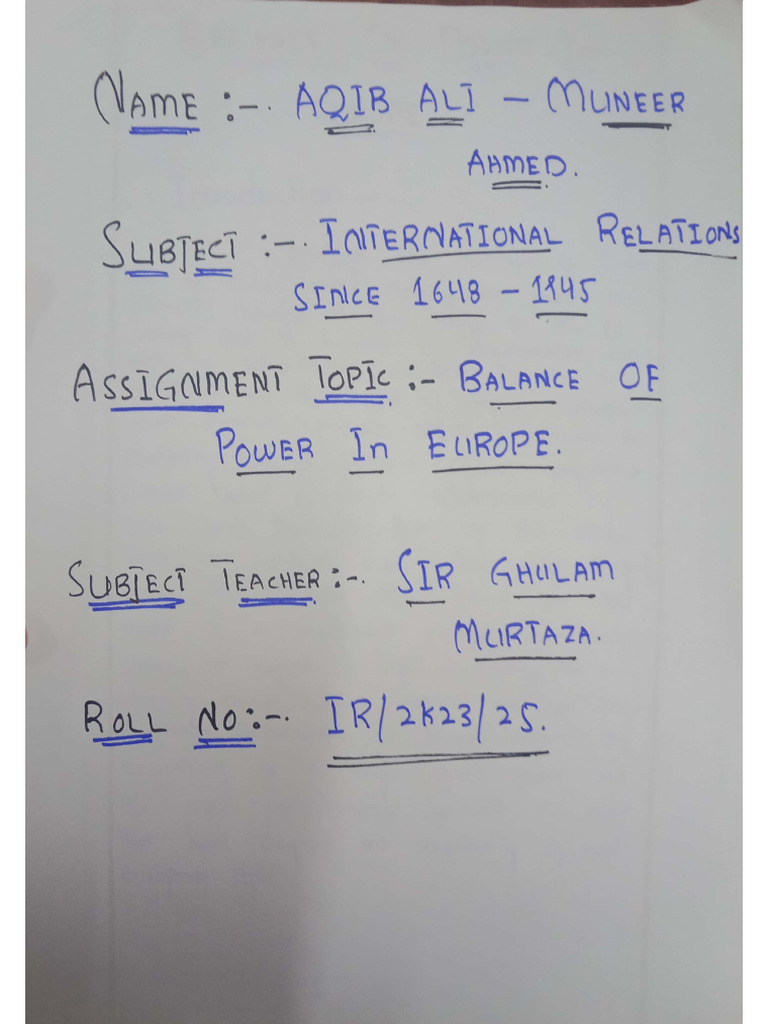 NAME :-. AQIB ALI - MUNEER
AHMED.
SUBJECT :-. INTERNATIONAL RELATIONS
SINCE 1648 - 1945
ASSIGNMENT TOPIC :- BALANCE OF
POWER In EUROPE.
SUBJECT TEACHER :-. SIR GHULAM
MURTAZA.
ROLL NO :-. IR/2K23/25.